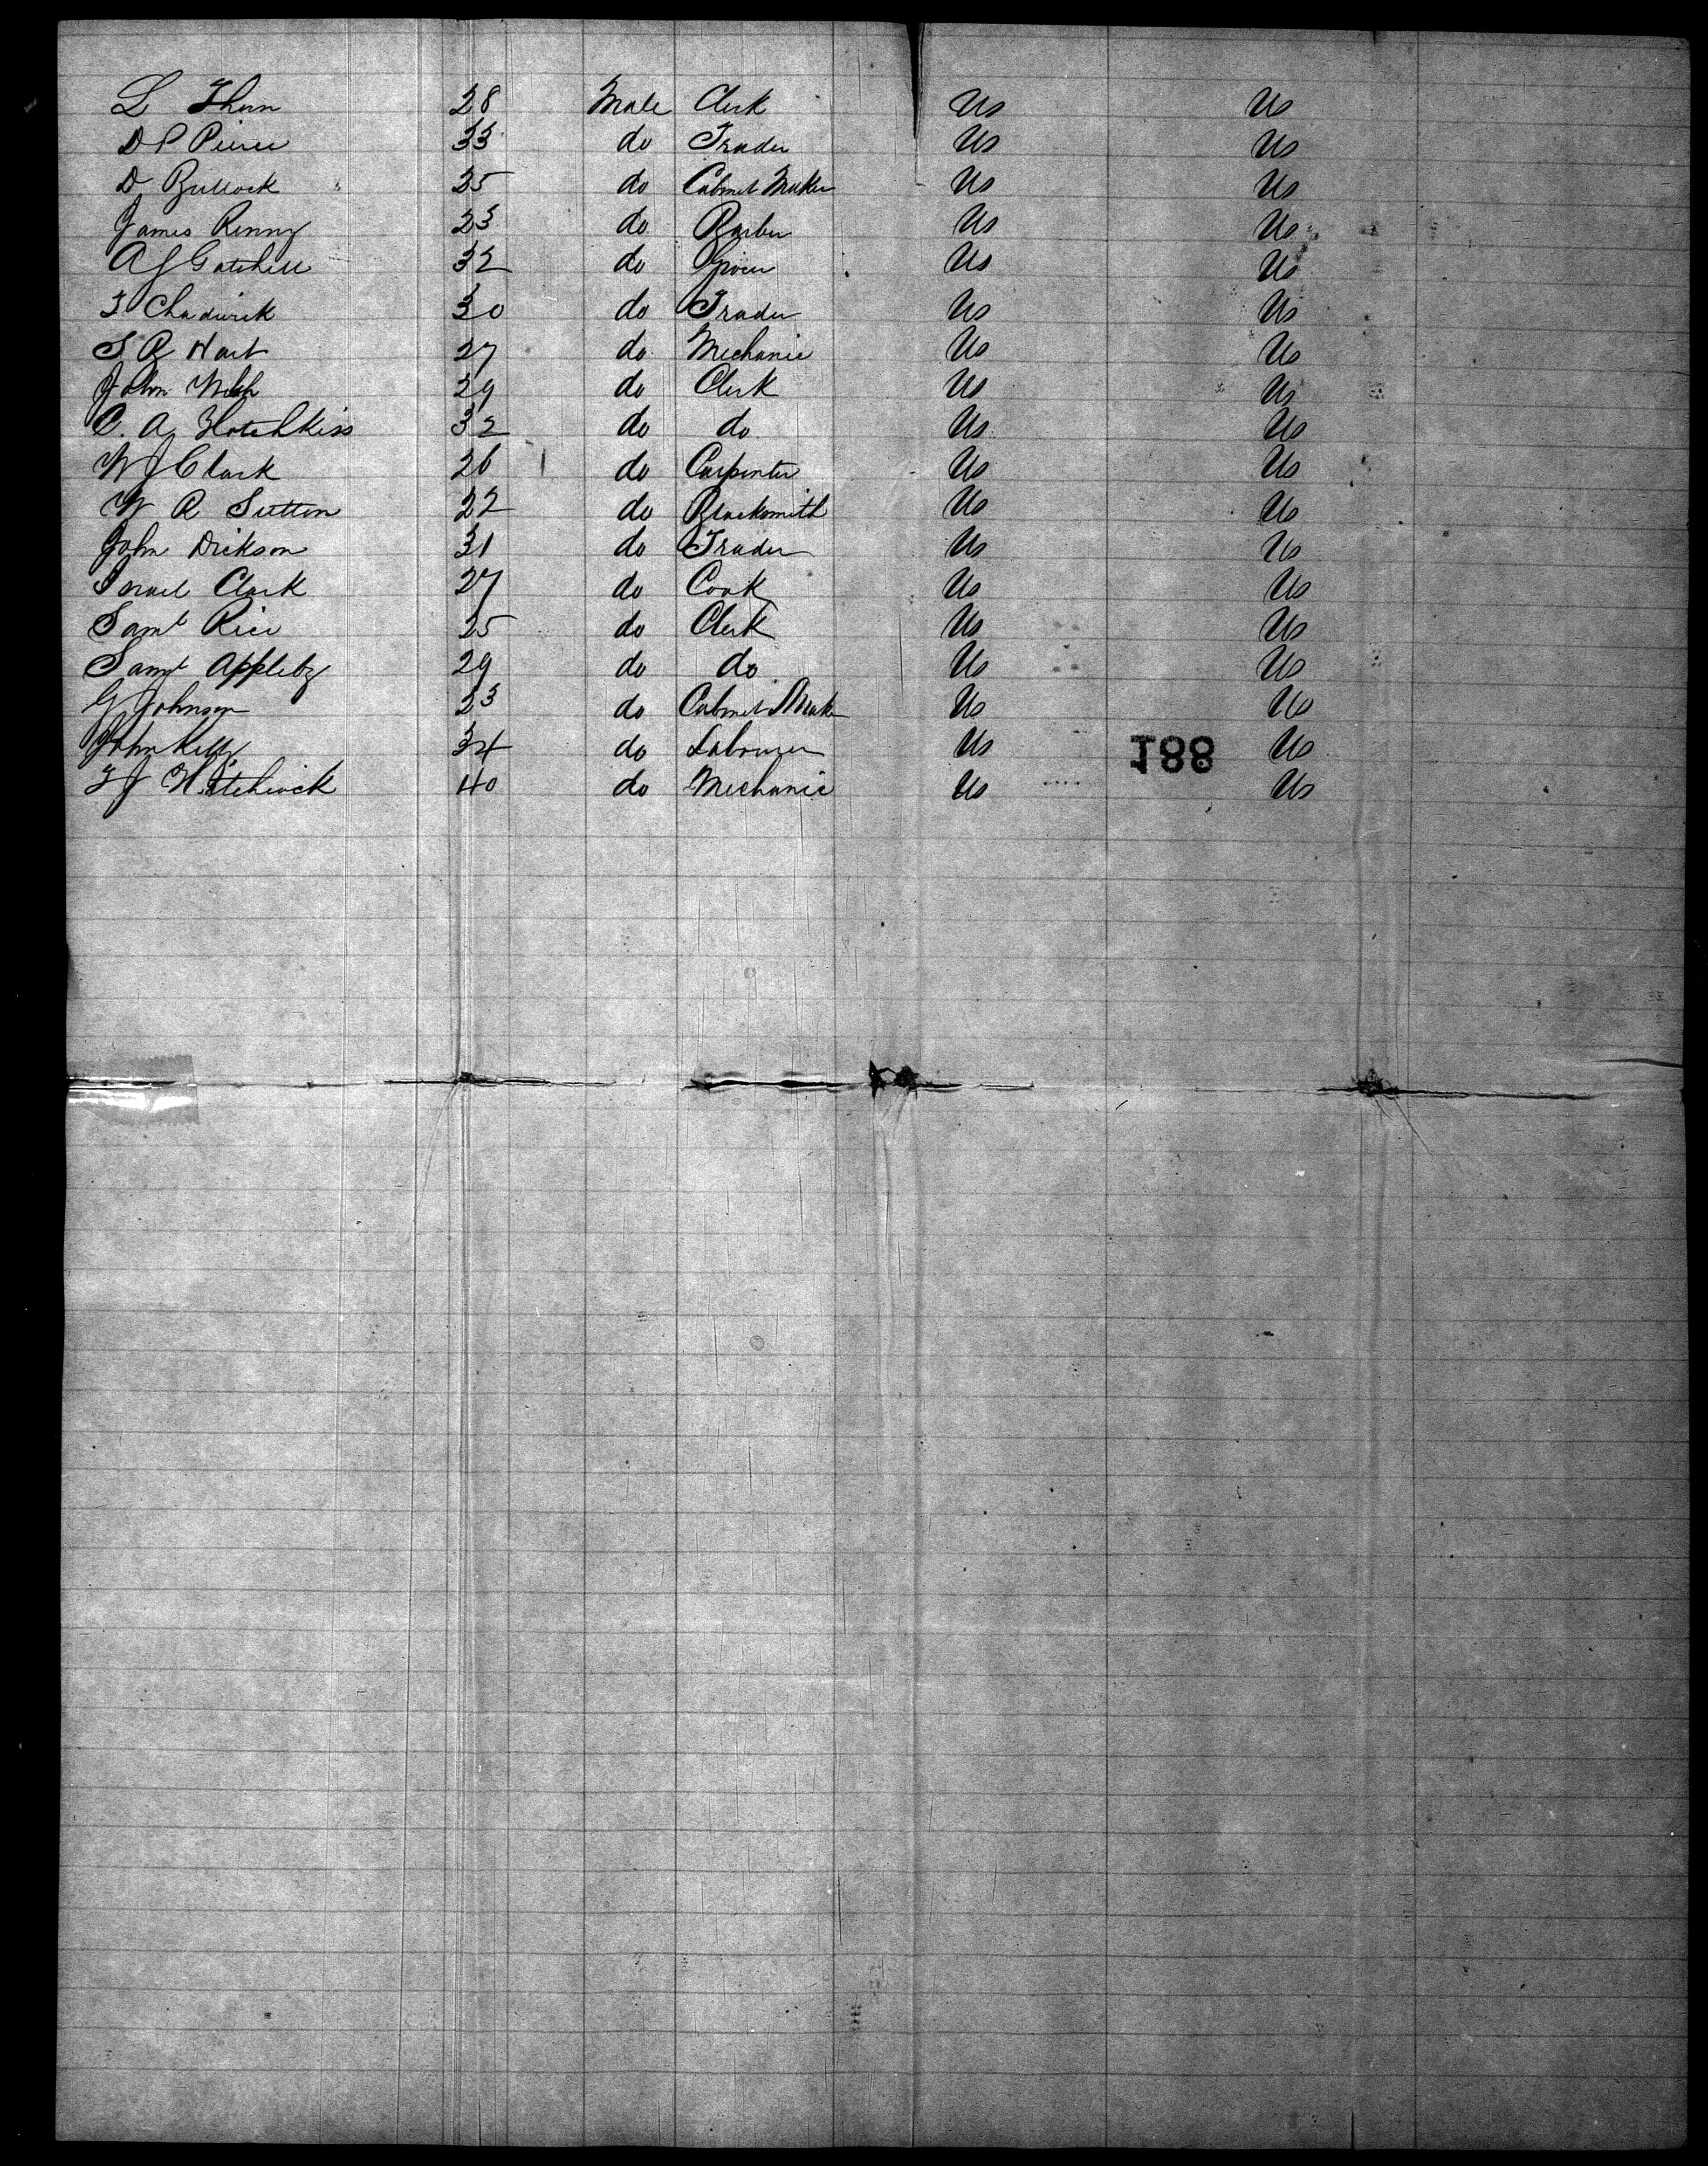 L Thum 28 Male Clerk US US
D P Pierce 33 do Trader US US
D Bullock 25 do Cabinet Maker US US
James Renny 23 do Barber US US
A J Gatchell 32 do Grocer US US
F Chadwick 30 do Trader US US
S R Hart 27 do Mechanic US US
John Welch 29 do Clerk US US
C. A. Hotchkiss 32 do do US US
W J Clark 26 do Carpenter US US
W R Sutton 22 do Blacksmith US US
John Dickson 31 do Trader US US
Israel Clark 27 do Cook US US
Saml Rice 25 do Clerk US US
Saml Appleby 29 do do US US
G Johnson 23 do Cabinet Maker US US
John Kelly 34 do Labourer US US
188
T J Hitchcock 40 do Mechanic US US